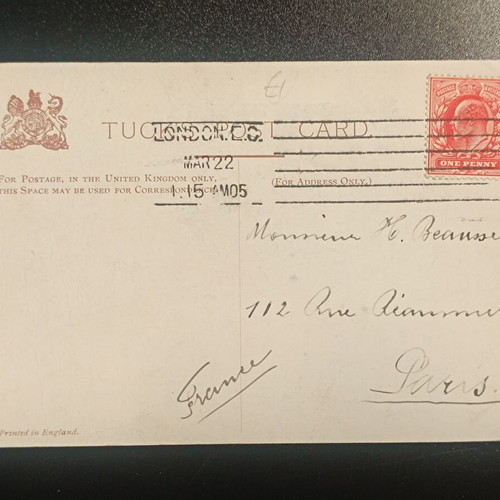 £1
TUCK'S POST CARD.
LONDON.E.C.
MAR 22
1.15 AM 05
FOR POSTAGE, IN THE UNITED KINGDOM ONLY,
THIS SPACE MAY BE USED FOR CORRESPONDENCE
(FOR ADDRESS ONLY.)
ONE PENNY
Monsieur H. Beausse
112 Rue Réaumur
Paris.
France
Printed in England.